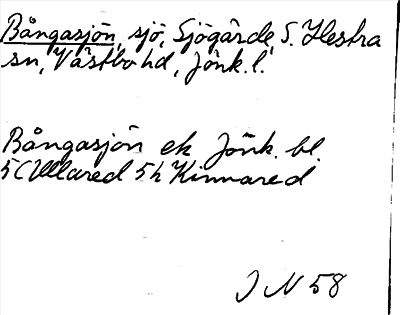 Bångasjön, sjö, Sjögärde, S. Hestra
sn, Västbo hd, Jönk. l.
Bångasjön ek Jönk. bl.
5C Ullared 5h Kinnared
J N 58